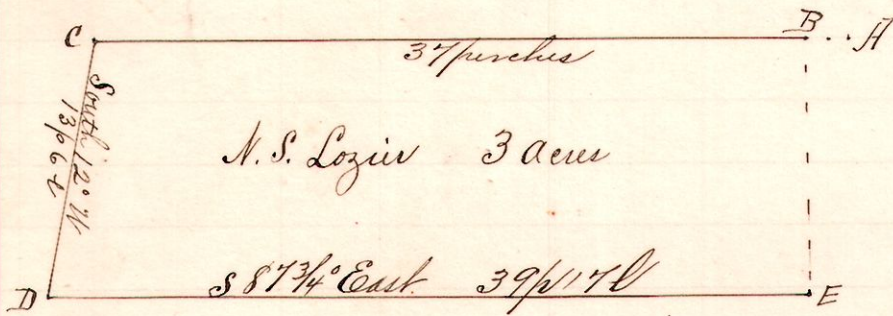 C
B
A
37 perches
South 12° W
13 p 6 l
N. S. Lozier 3 Acres
S 87 3/4° East. 39 p 17 l
D
E